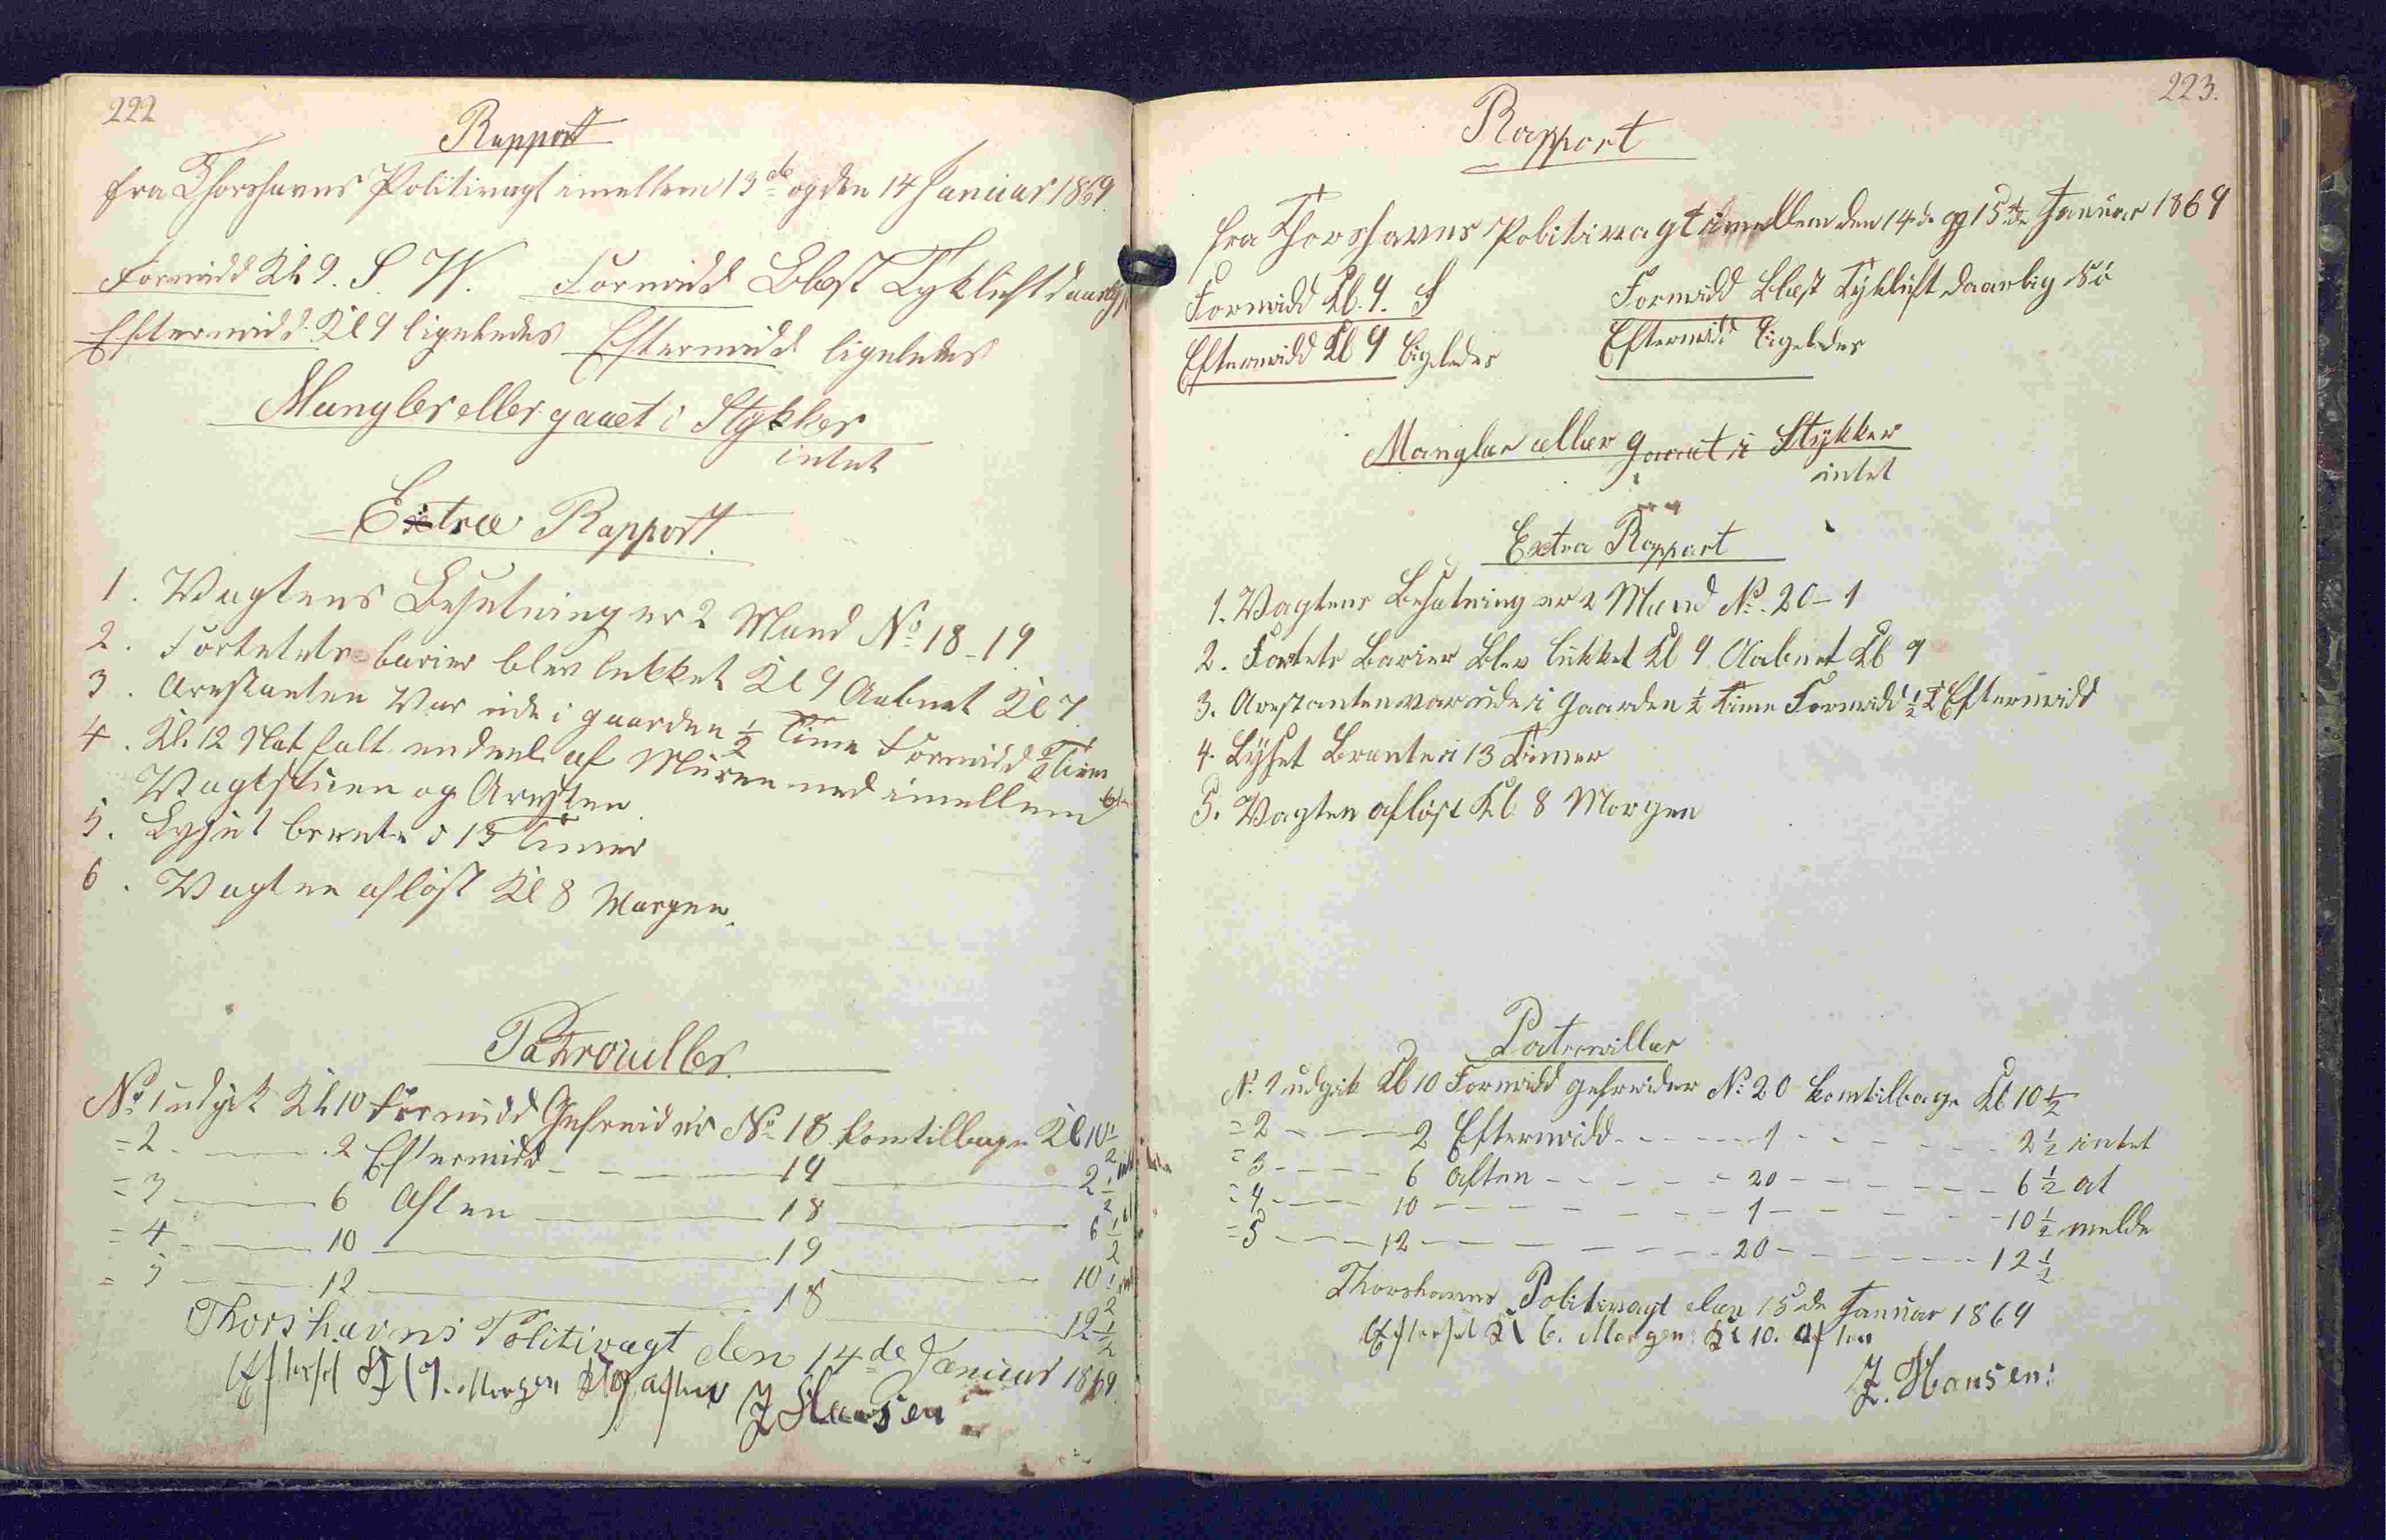 222
Rapport
fra Thorshavns Politivagt imellem 13de og den 14 Januar 1869.
Formidd Kl 9. S. W. Formidd Blæst Tykluft daarlig
Eftermidd. Kl 9 ligeledes Eftermidd ligeledes
Mangler eller gaaet i Stykker
intet
Extra Rapport.
1. Vagtens Besætning er 2 Mand No 18-19.
2. Fortetets barier blev lukket Kl 9 Aabnet Kl 7.
3. Arestanten Var ude i gaarden 1/2 Time Formidd 1/2 Time
4. Kl. 12 Nat falt en deel af Muren ned imellem
Vagtstuen og Aresten.
5. Lyset brente i 13 Timer
6. Vagten afløst Kl 8 Morgen.
Patrouller.
No 1 udgik Kl 10 Formidd Gefreider No 18 kom tilbage Kl 10 1/2
= 2 2 Eftermidd 19 2 1/2
= 3 6 Aften 18 6 1/2
= 4 10 19 10 1/2
= 5 12 18 12 1/2
Thorshavns Politivagt den 14de Januar 1869.
Efterset Kl 7. Morgen Kl 9 aften
J Hansen
223.
Rapport
fra Thorshavns Politivagt imellem den 14de og 15de Januar 1869
Formidd Kl. 9. S Formidd Blæst Tykluft daarlig Sö
Eftermidd Kl 9 ligeledes Eftermidd ligeledes
Mangler eller gaaet i Stykker
intet
Extra Rapport
1. Vagtens Besætning er 2 Mand No. 20-1
2. Fortets Barier Blev lukket Kl 9 Aabnet Kl 7
3. Arestanten var ude i Gaarden 1/2 Time Formidd 1/2 T Eftermidd
4. Lyset Brente i 13 Timer
5. Vagten afløst Kl. 8 Morgen
Patrouiller
No. 1 udgik Kl 10 Formidd gefreider No. 20 kom tilbage Kl 10 1/2
= 2 2 Eftermidd 1 2 1/2 intet
= 3 6 Aften 20 6 1/2 at
= 4 10 1 10 1/2 melde
= 5 12 20 12 1/2
Thorshavns Politivagt den 15de Januar 1869
Efterset Kl 6. Morgen Kl 10. Aften
J. Hansen: